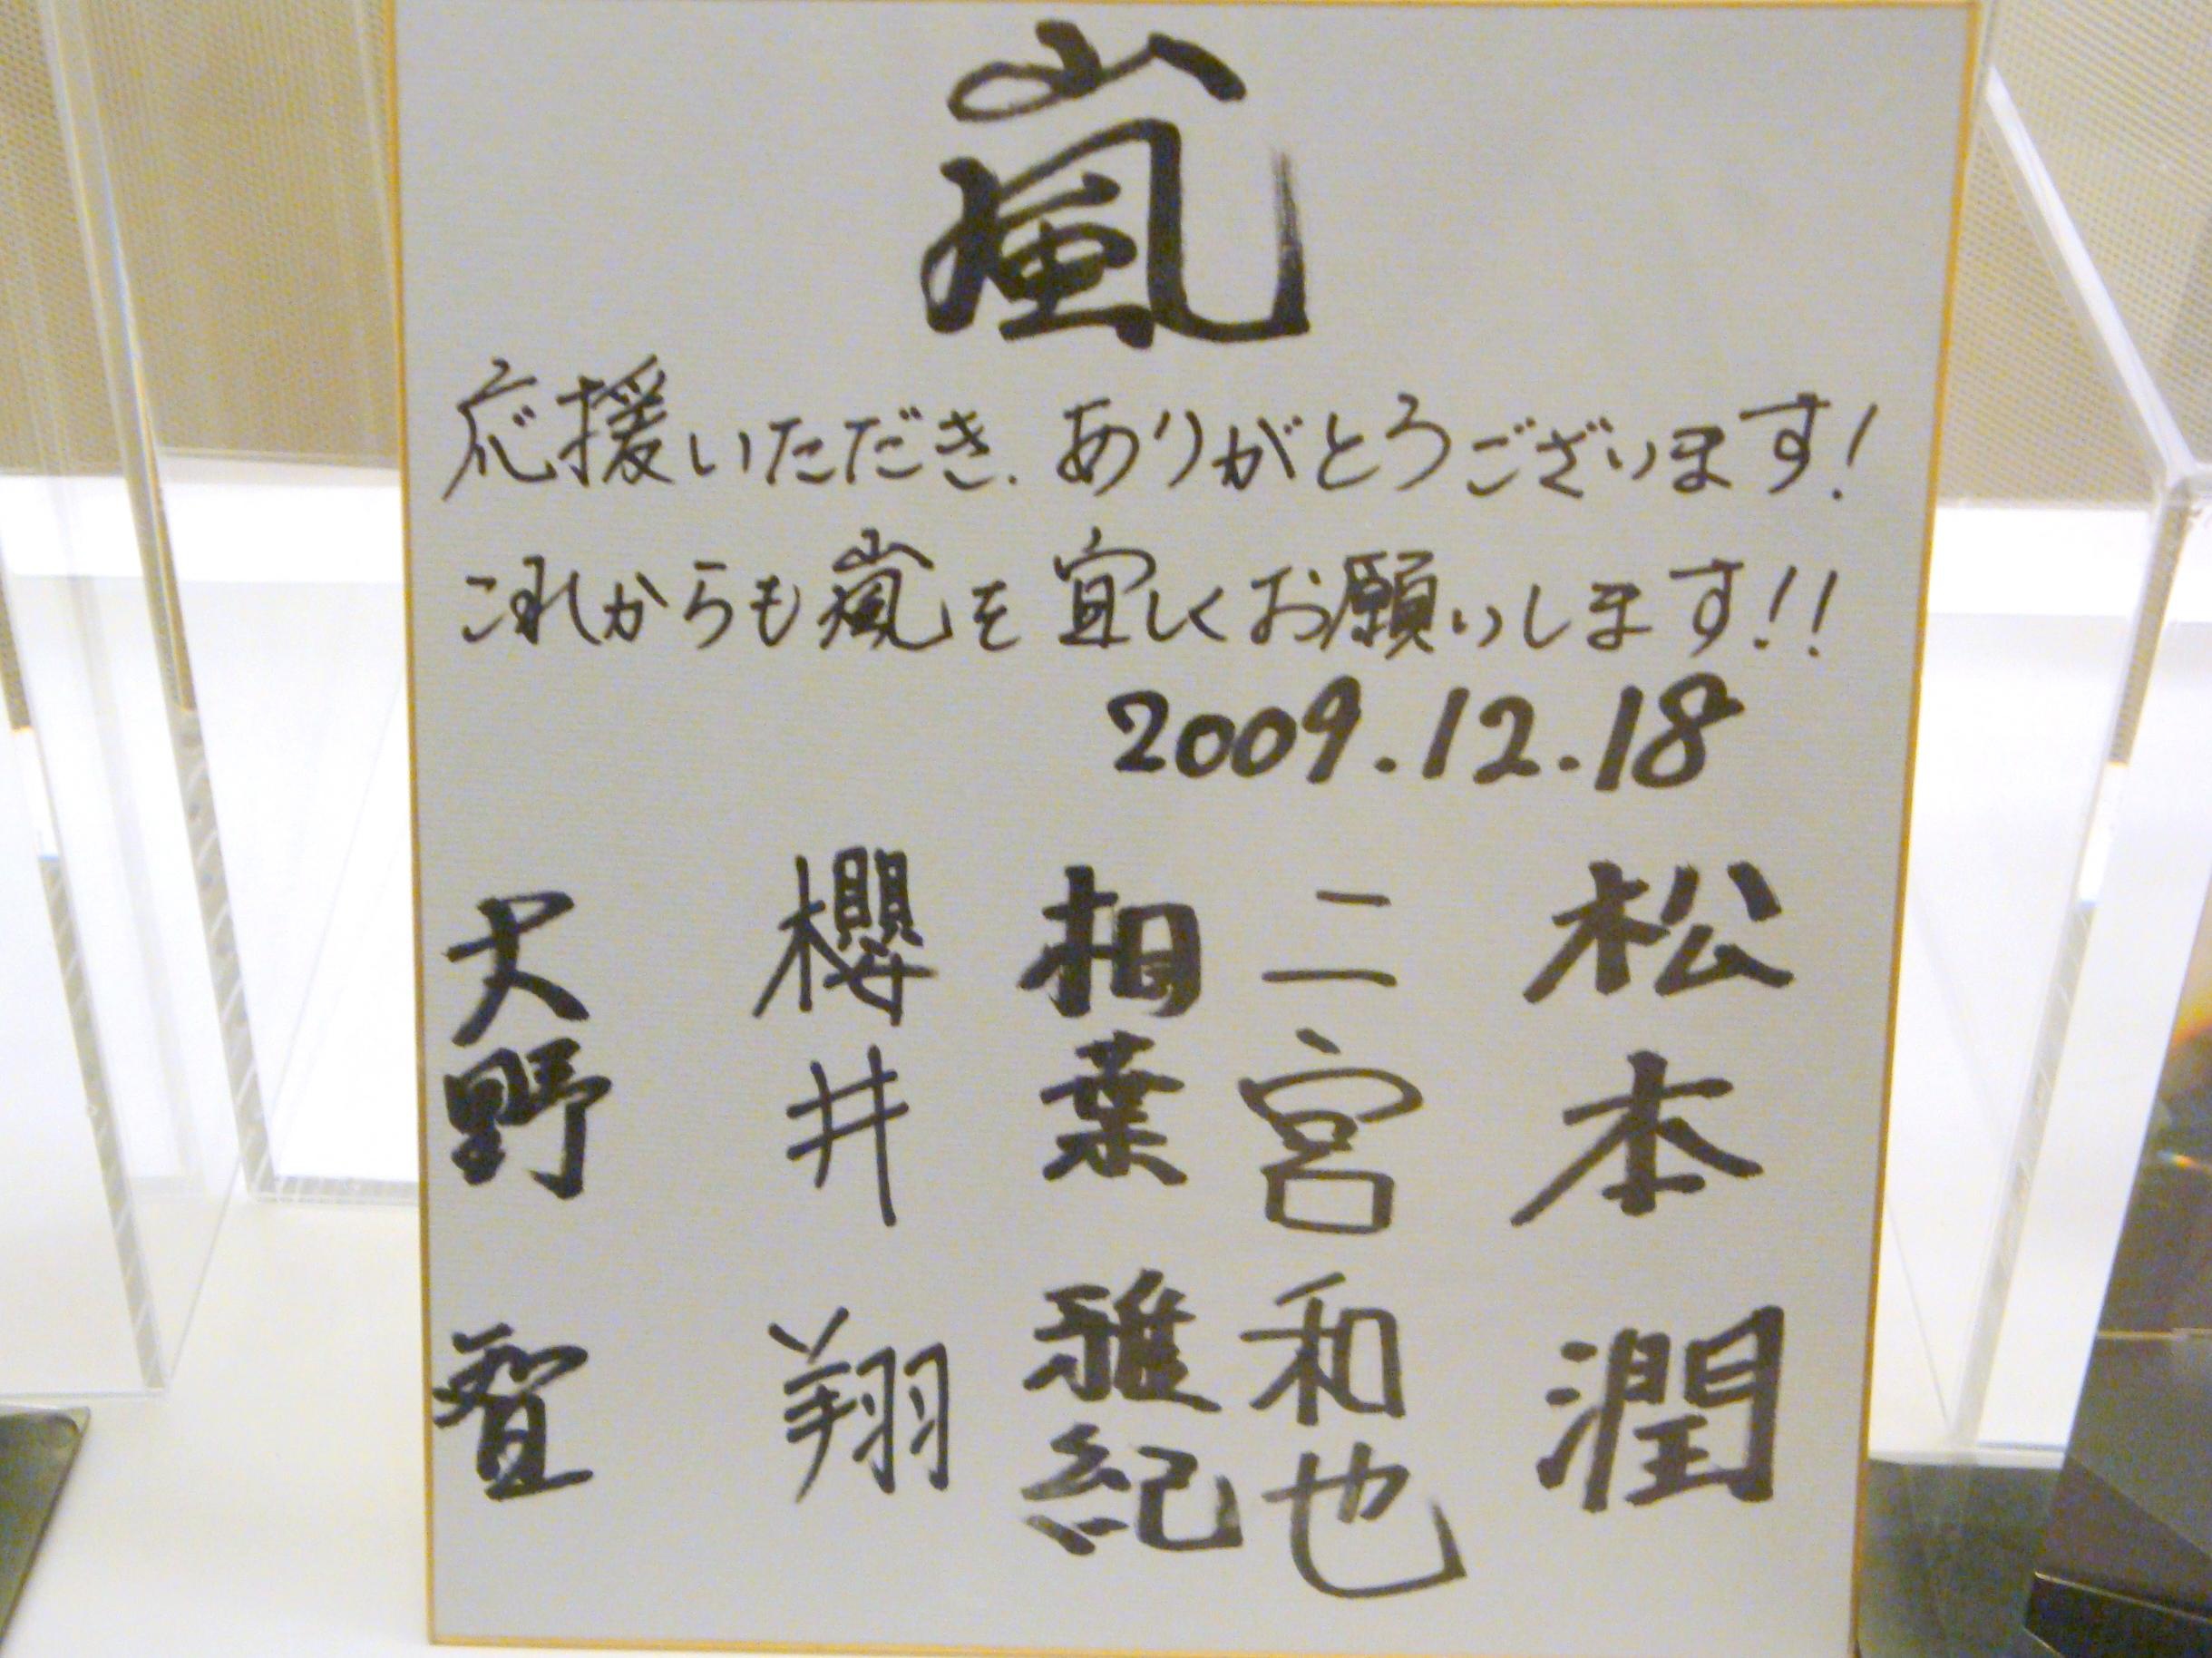 嵐
応援いただき、ありがとうございます!
これからも嵐を宜しくお願いします!!
2009.12.18
大野 智
櫻井 翔
相葉 雅紀
二宮 和也
松本 潤